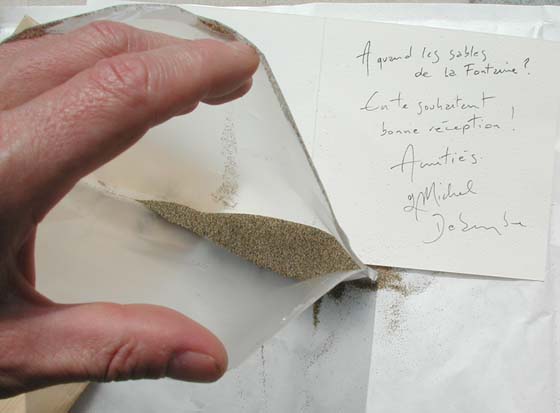 A quand les sables
de la Fontaine?
En te souhaitant
bonne réception!
Amitiés.
Michel